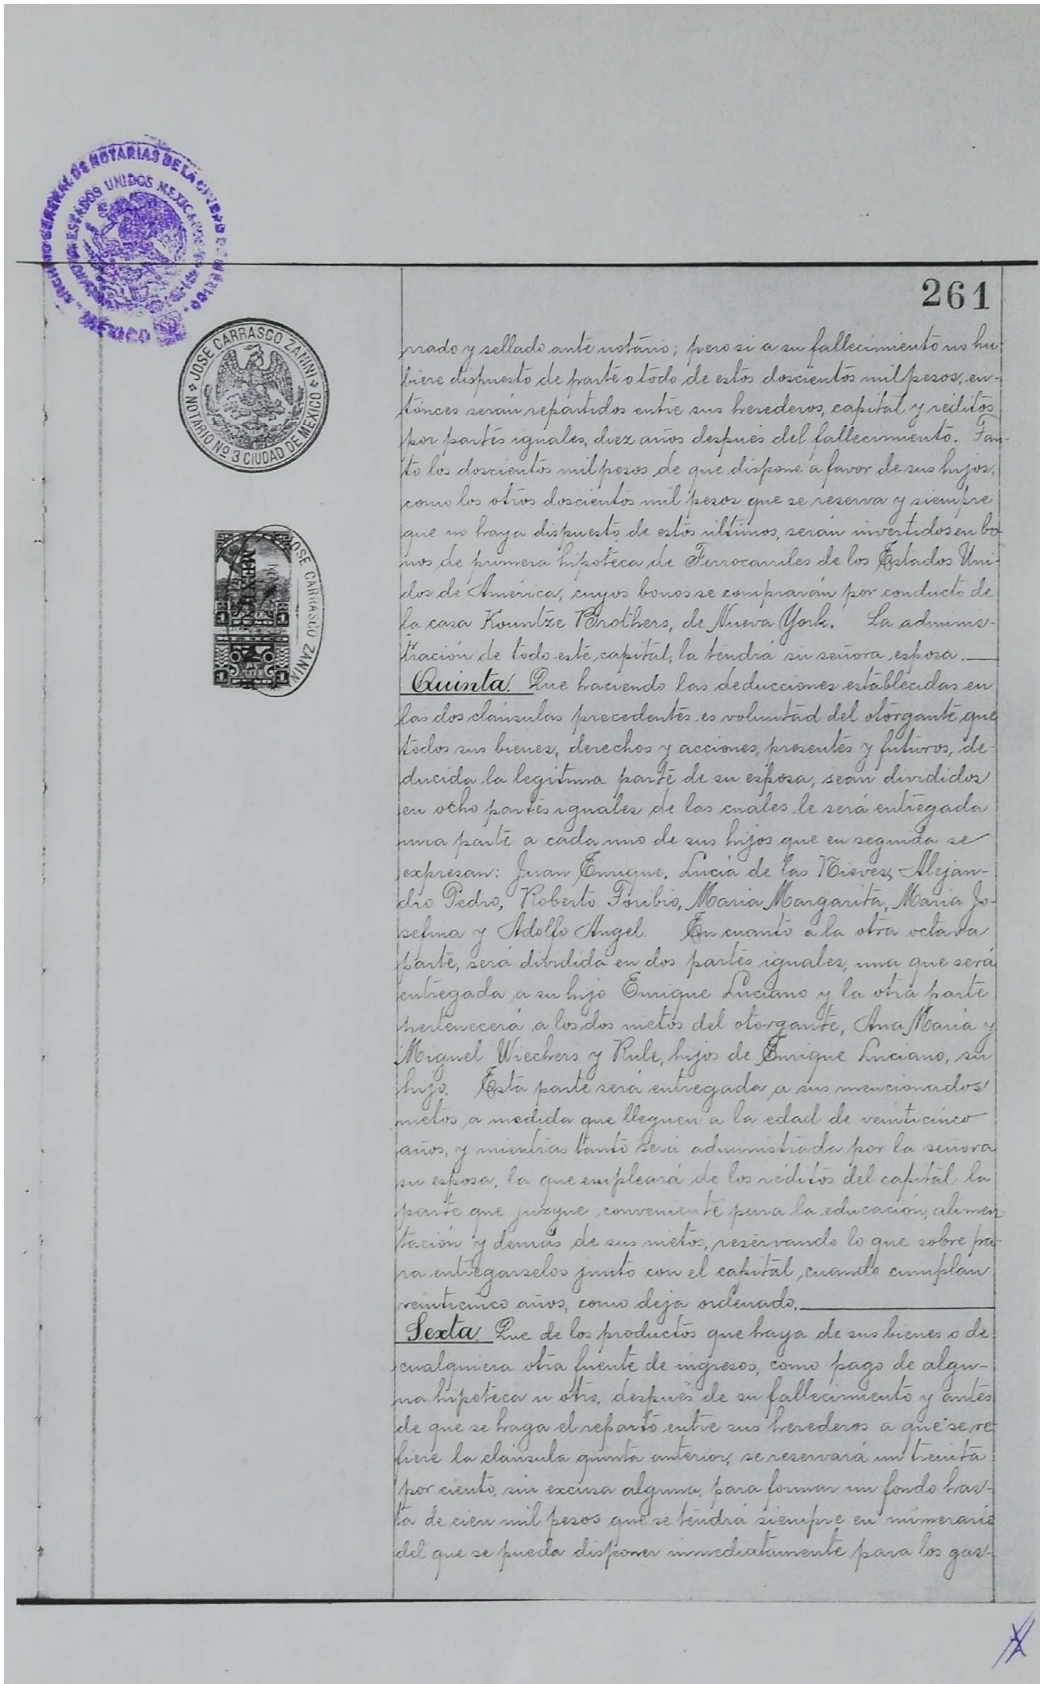 261
ARCHIVO GENERAL DE NOTARIAS DE LA CIUDAD DE MEXICO
ESTADOS UNIDOS MEXICANOS
MEXICO
JOSE CARRASCO ZANINI
NOTARIO Nº 3 CIUDAD DE MEXICO
JOSE CARRASCO ZANINI
MEXICO
1 1
1 1
rrado y sellado ante notário; pero si a su fallecimiento no hu
biere dispuesto de parte o todo de estos doscientos mil pesos, en-
tónces serán repartidos entre sus herederos, capital y réditos
por partes iguales, diez años después del fallecimiento. Tan-
to los doscientos mil pesos de que dispone a favor de sus hijos,
como los otros doscientos mil pesos que se reserva y siempre
que no haya dispuesto de estos últimos, serán invertidos en bo
nos de primera hipoteca de Ferrocarriles de los Estados Uni-
dos de América, cuyos bonos se comprarán por conducto de
la casa Kountze Brothers, de Nueva York. La adminis-
tración de todo este capital, la tendrá su señora esposa.
Quinta. Que haciendo las deducciones establecidas en
las dos cláusulas precedentes es voluntad del otorgante que
todos sus bienes, derechos y acciones, presentes y futuros, de-
ducida la legítima parte de su esposa, sean divididos
en ocho partes iguales de las cuales le será entregada
una parte a cada uno de sus hijos que en seguida se
expresan: Juan Enrique, Lucía de las Nieves, Alejan-
dro Pedro, Roberto Toribio, María Margarita, María Jo-
sefina y Adolfo Angel. En cuanto a la otra octava
parte, será dividida en dos partes iguales, una que será
entregada a su hijo Enrique Luciano y la otra parte
pertenecerá a los dos nietos del otorgante, Ana María y
Miguel Wiechers y Rule, hijos de Enrique Luciano, su
hijo. Esta parte será entregada a sus mencionados
nietos a medida que lleguen a la edad de veinticinco
años, y mientras tanto será administrada por la señora
su esposa, la que empleará de los réditos del capital la
parte que juzgue conveniente para la educación, alimen-
tación y demás de sus nietos, reservando lo que sobre pa-
ra entregárselos junto con el capital, cuando cumplan
veinticinco años, como deja ordenado.
Sexta. Que de los productos que haya de sus bienes o de
cualquiera otra fuente de ingresos, como pago de algu-
na hipoteca u otro, después de su fallecimiento y antes
de que se haga el reparto entre sus herederos a que se re-
fiere la cláusula quinta anterior, se reservará un treinta
por ciento, sin excusa alguna, para formar un fondo has-
ta de cien mil pesos que se tendrá siempre en numerario
del que se pueda disponer inmediatamente para los gas-